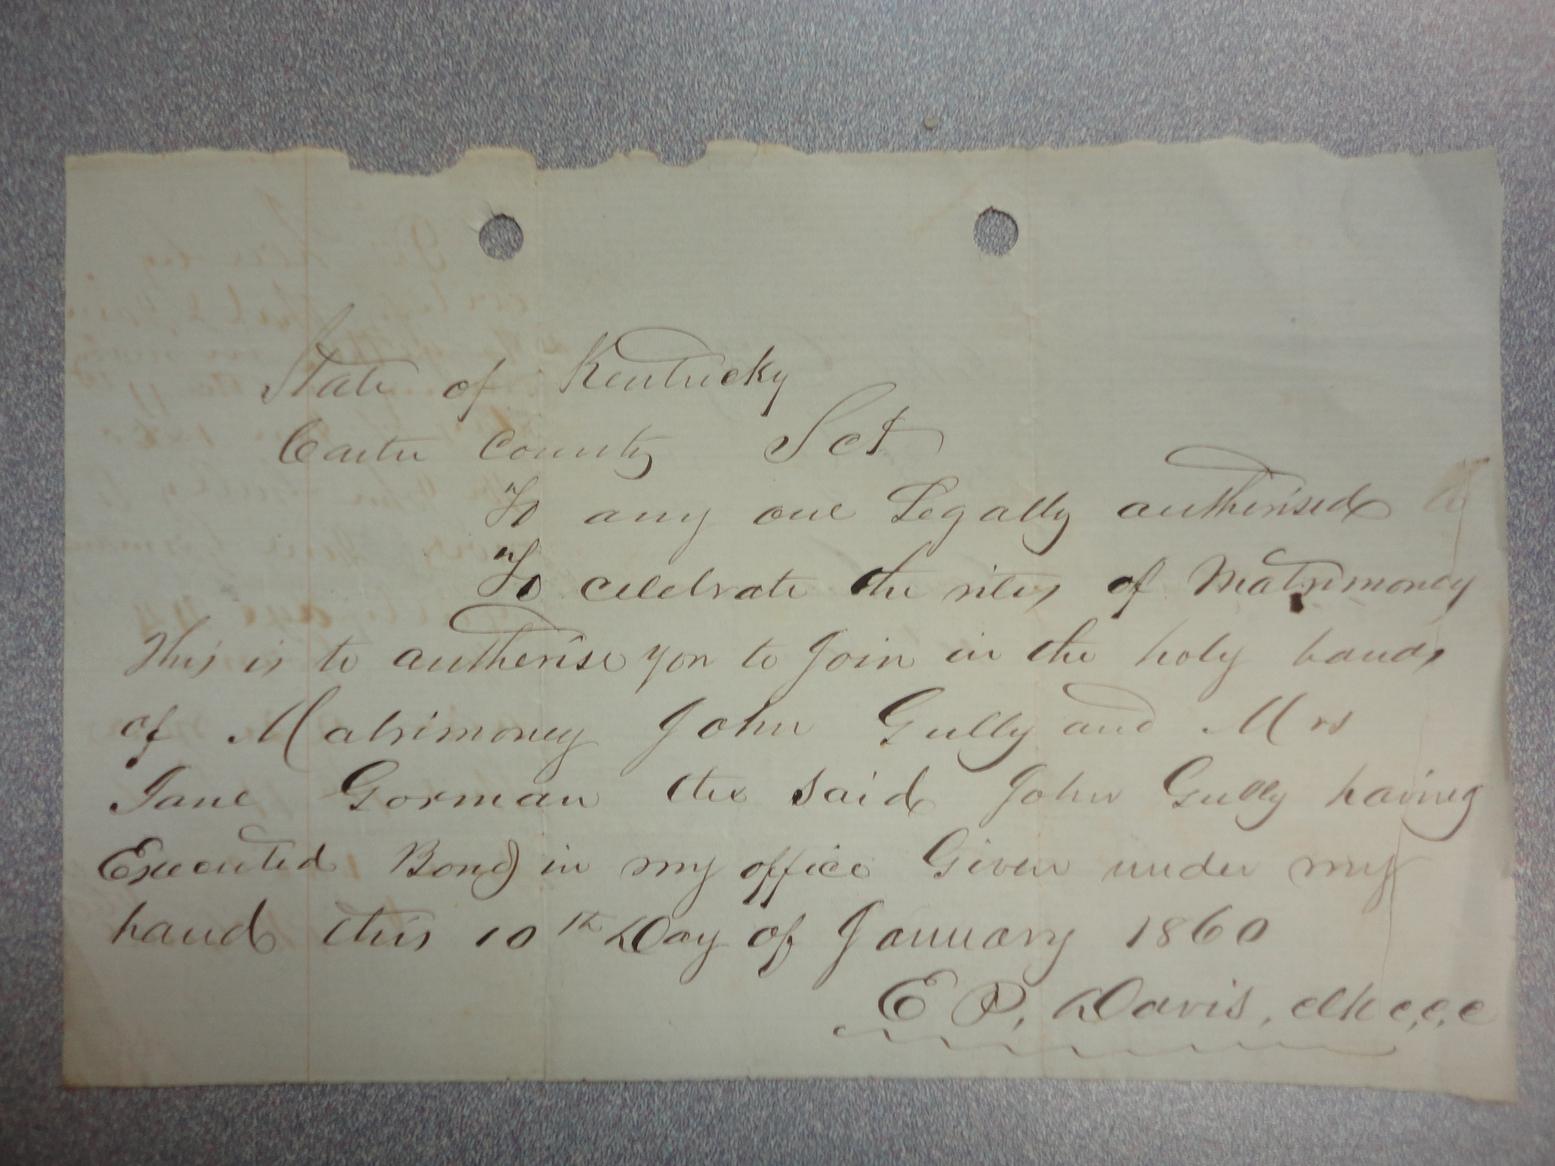 State of Kentucky
Carter County Sct
To any one Legally authorised to
To celebrate the rites of Matrimoney
This is to autherise you to Join in the holy bands
of Matrimoney John Gully and Mrs
Jane Gorman the said John Gully having
Executed Bond in my office Given under my
hand this 10th Day of January 1860
E P. Davis, Clk c,c,c